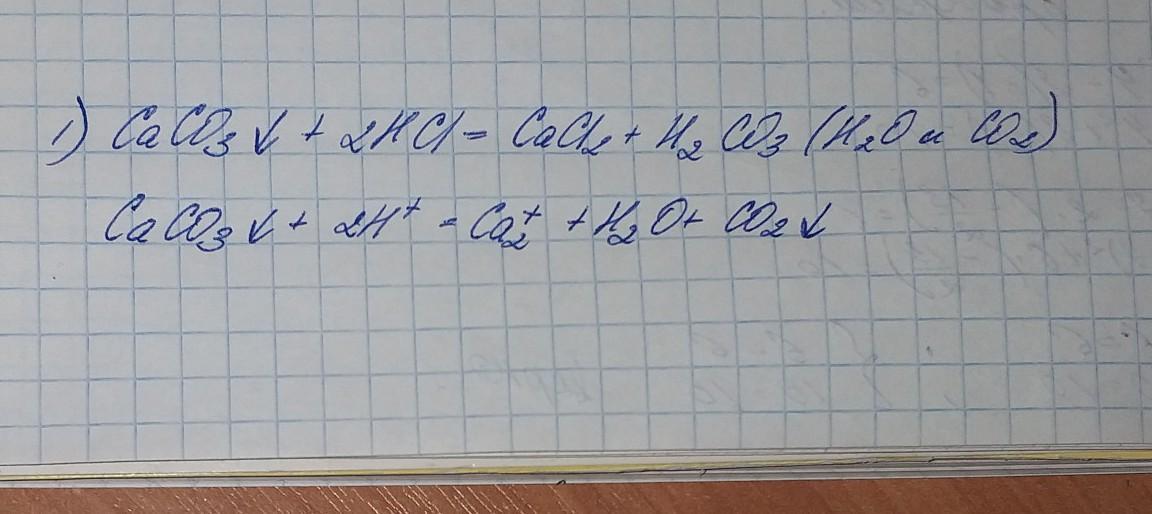 1) CaCO₃↓ + 2HCl = CaCl₂ + H₂CO₃ (H₂O и CO₂)
CaCO₃↓ + 2H⁺ = Ca₂⁺ + H₂O + CO₂↓